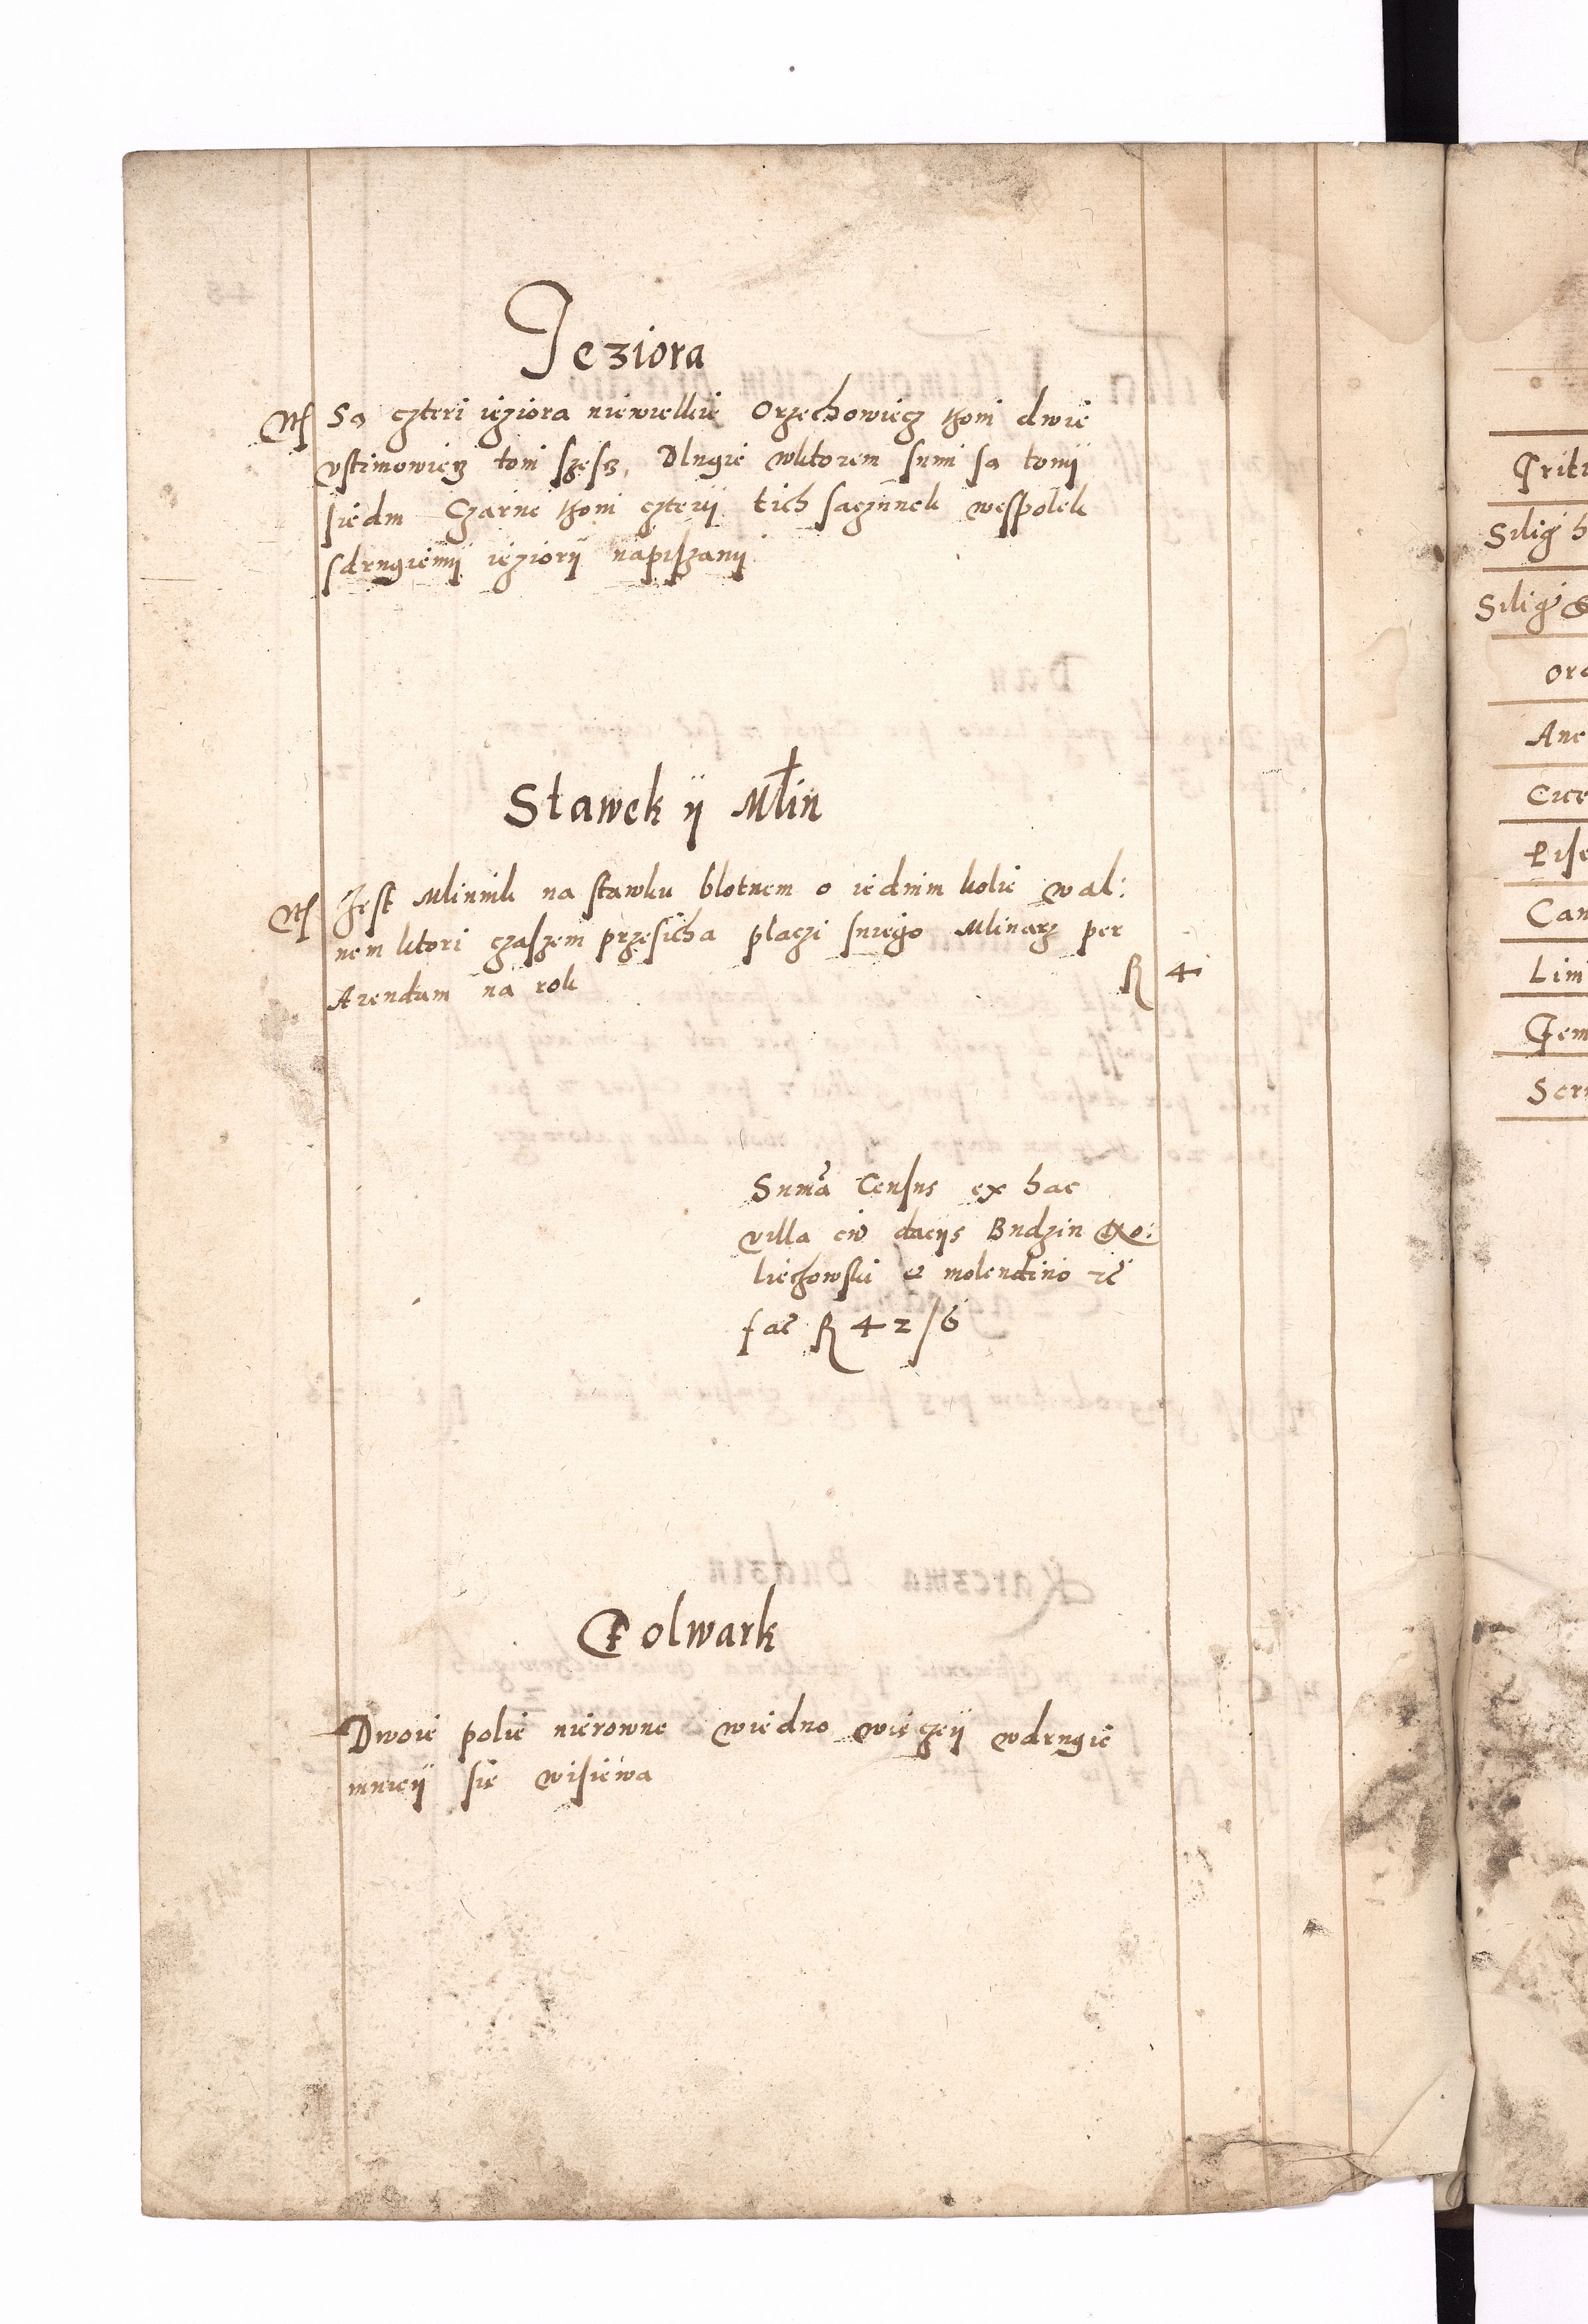 Jeziora
Sa czteri ieziora niewielkie Orzechowiecz toni dwie
vstimowiecz toni szesz, Dlugie wktorem sumi sa tonij
siedm Czarne toni czterij tich saczunek wespolek
sdrugiemij ieziorij napiszanij
Stawek ij Młin
Jest Mlinnik na stawku blotnem o iednim kolie wal:
nem ktori czaszem przesicha placzi sniego Mlinarz per
Arendam na rok R 4
Suma Census ex hac
villa cu dacijs Budzin
liechowski e molendino
fac R 42/6
Folwark
Dwoie polie nierowne wiedno wieczeij wdrugie
mnieij sie wisiewa
Siligi
Siligi
Ane
Cice
Pise
Can
Limi
Sem